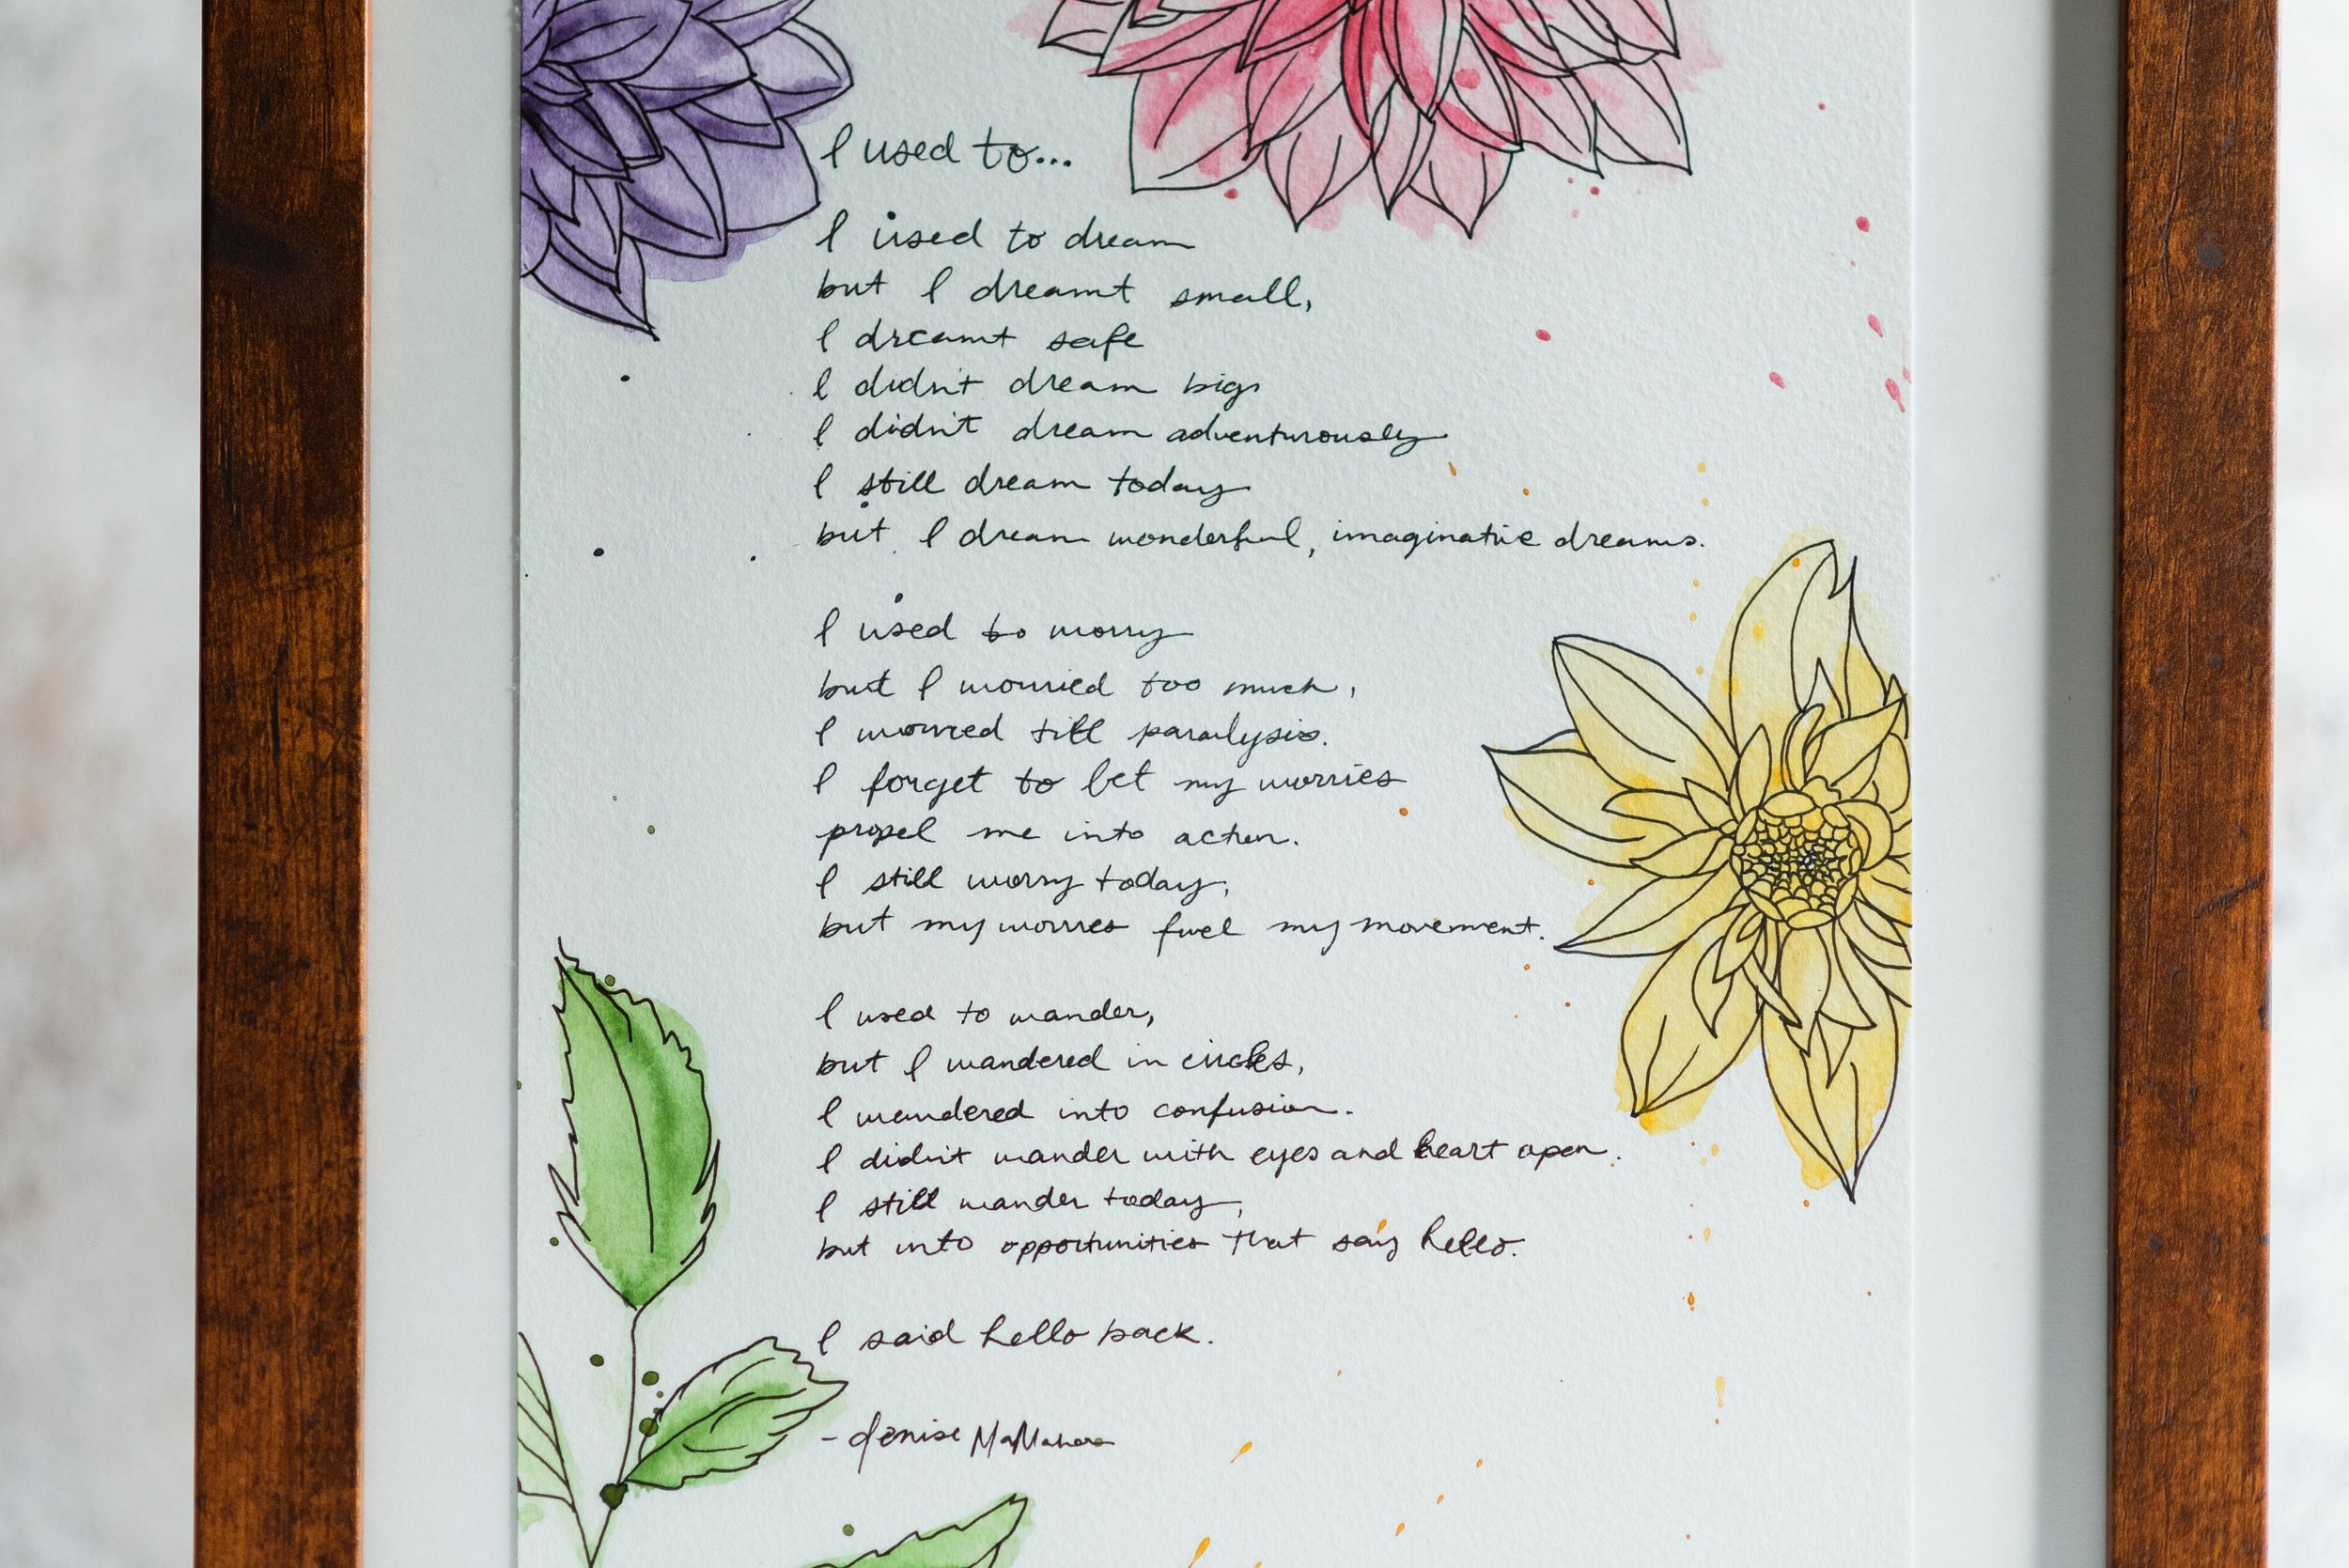 I used to...
I used to dream
but I dreamt small,
I dreamt safe
I didn't dream big
I didn't dream adventurously
I still dream today
but I dream wonderful, imaginative dreams.
I used to worry
but I worried too much,
I worried till paralysis.
I forget to let my worries
propel me into action.
I still worry today,
but my worries fuel my movement.
I used to wander,
but I wandered in circles,
I wandered into confusion.
I didn't wander with eyes and heart open.
I still wander today,
but into opportunities that say hello.
I said hello back.
- Denise